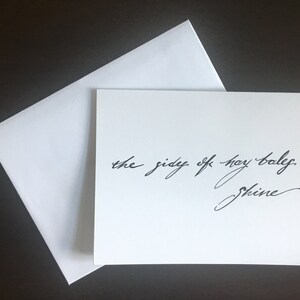 the sides of hay bales
shine